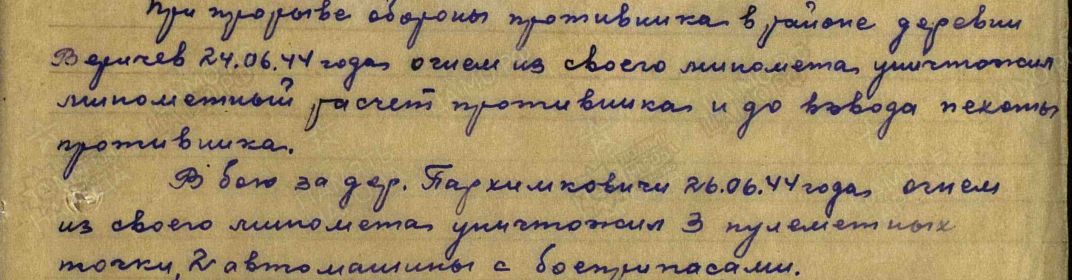 При прорыве обороны противника в районе деревни
Веричев 24.06.44 года огнем из своего миномета уничтожил
минометный расчет противника и до взвода пехоты
противника.
В бою за дер. Пархимковичи 26.06.44 года огнем
из своего миномета уничтожил 3 пулеметных
точки, 2 автомашины с боеприпасами.